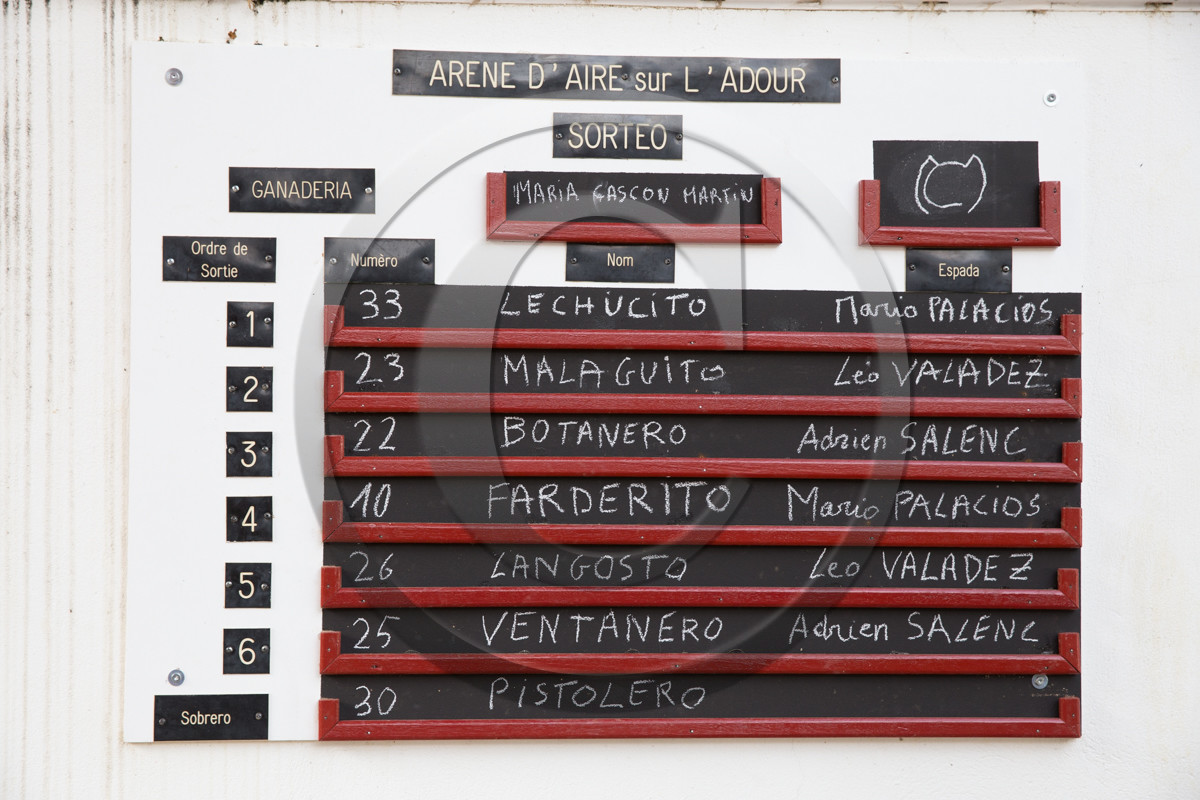 ARENE D'AIRE sur L'ADOUR
SORTEO
GANADERIA MARIA GASCON MARTIN
Ordre de Sortie Numèro Nom Espada
1 33 LECHUCITO Mario PALACIOS
2 23 MALAGUITO Léo VALADEZ
3 22 BOTANERO Adrien SALENC
4 10 FARDERITO Mario PALACIOS
5 26 LANGOSTO Leo VALADEZ
6 25 VENTANERO Adrien SALENC
Sobrero 30 PISTOLERO